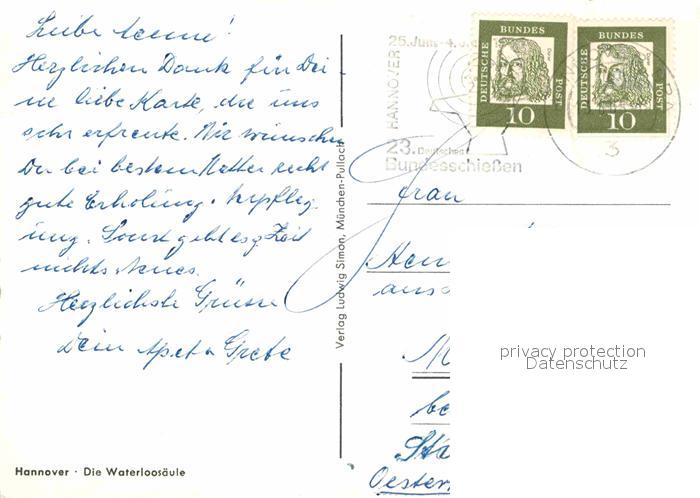 Liebe Aenne!
Herzlichen Dank für Dei
ne liebe Karte, die uns
sehr erfreute. Wir wünschen
Dir bei bestem Wetter recht
gute Erholung u. Verpfleg
ung. Sonst gebt es z. Zeit
nichts Neues.
Herzlichste Grüsse
Dein u. Grete
Hannover · Die Waterloosäule
Verlag Ludwig Simon, München-Pullach
25. Juni - 4.
HANNOVER
23. Deutsches
Bundesschießen
DEUTSCHE BUNDES POST
10
DEUTSCHE BUNDES POST
10
3
Frau
M
be
Oester
privacy protection
Datenschutz